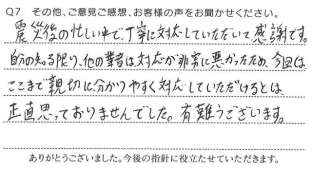 Q7 その他、ご意見ご感想、お客様の声をお聞かせください。
震災後の忙しい中で、丁寧に対応していただいて感謝です。
自分の知る限り、他の業者は対応が非常に悪かったため、今回は
ここまで親切に分かりやすく対応していただけるとは
正直思っておりませんでした。有難うございます。
ありがとうございました。今後の指針に役立たせていただきます。